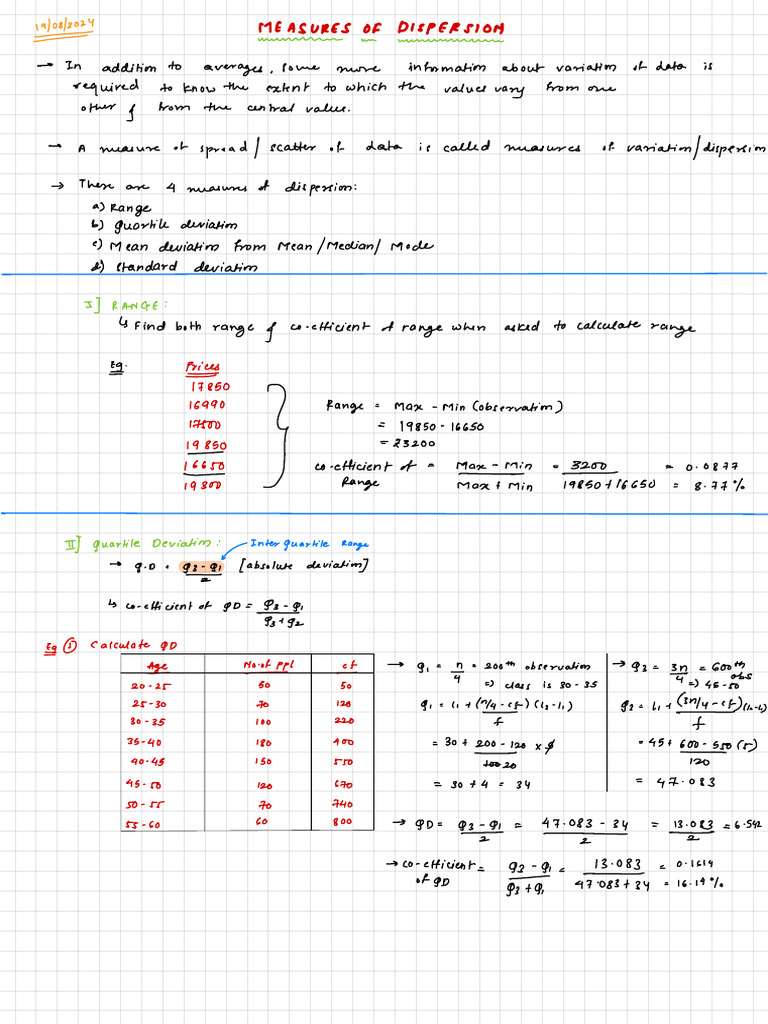 19/08/2024
MEASURES OF DISPERSION
→ In addition to averages, some more information about variation of data is
required to know the extent to which the values vary from one
other & from the central value.
→ A measure of spread/ scatter of data is called measures of variation/dispersion
→ There are 4 measures of dispersion:
a) Range
b) Quartile deviation
c) Mean deviation from Mean/Median/ Mode
d) Standard deviation
I] RANGE:
↳ Find both range & co-efficient of range when asked to calculate range
Eg. Prices
17850
16990
17500
19850
16650
19300
Range = Max - Min (observation)
= 19850 - 16650
= 23200
co-efficient of Range = Max - Min / Max + Min = 3200 / 19850+16650 = 0.0877
= 8.77%
II] Quartile Deviation: Inter Quartile Range
→ Q.D = Q3 - Q1 / 2 [absolute deviation]
↳ co-efficient of QD = Q3 - Q1 / Q3 + Q2
Eg ① Calculate QD
Age No. of ppl cf
20-25 50 50
25-30 70 120
30-35 100 220
35-40 180 400
40-45 150 550
45-50 120 670
50-55 70 740
55-60 60 800
→ Q1 = n/4 = 200th observation
=> class is 30-35
Q1 = l1 + (n/4 - cf)(l2-l1) / f
= 30 + 200 - 120 / 100 20 x 5
= 30 + 4 = 34
→ Q3 = 3n/4 = 600th obs
=> 45-50
Q3 = l1 + (3n/4 - cf)(l2-l1) / f
= 45 + 600 - 550 (5) / 120
= 47.083
→ QD = Q3 - Q1 / 2 = 47.083 - 34 / 2 = 13.083 / 2 = 6.542
→ co-efficient of QD = Q3 - Q1 / Q3 + Q1 = 13.083 / 47.083 + 34 = 0.1614
= 16.14%